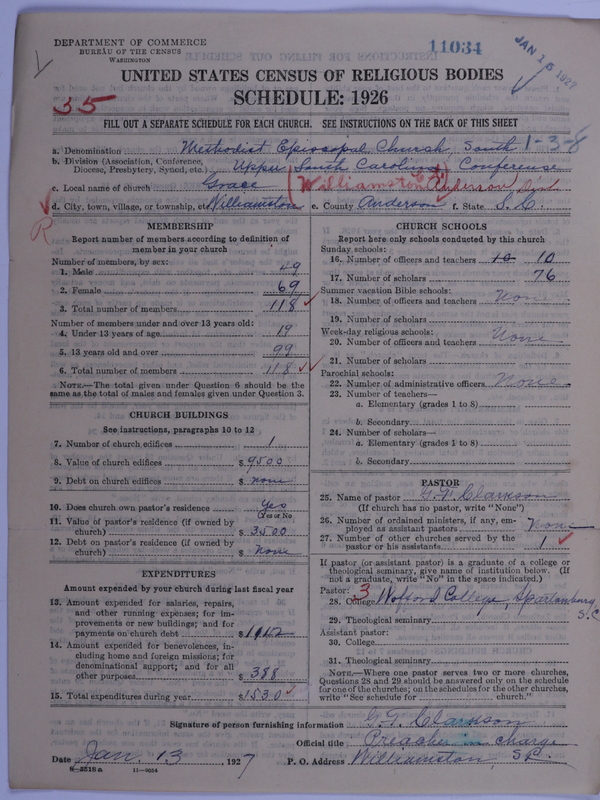 DEPARTMENT OF COMMERCE
BUREAU OF THE CENSUS
WASHINGTON
11034
JAN 15 1927
UNITED STATES CENSUS OF RELIGIOUS BODIES
35
SCHEDULE: 1926
FILL OUT A SEPARATE SCHEDULE FOR EACH CHURCH. SEE INSTRUCTIONS ON THE BACK OF THIS SHEET
a. Denomination Methodist Episcopal Church, South 1-3-8
b. Division (Association, Conference, Diocese, Presbytery, Synod, etc.) Upper South Carolina Conference
c. Local name of church Grace (Williamston) Anderson Dist
d. City, town, village, or township, etc. Williamston e. County Anderson f. State S.C.
R
MEMBERSHIP
Report number of members according to definition of member in your church
Number of members, by sex:
1. Male 49
2. Female 69
3. Total number of members 118
Number of members under and over 13 years old:
4. Under 13 years of age 19
5. 13 years old and over 99
6. Total number of members 118
NOTE.—The total given under Question 6 should be the same as the total of males and females given under Question 3.
CHURCH BUILDINGS
See instructions, paragraphs 10 to 12
7. Number of church edifices 1
8. Value of church edifices $ 9500
9. Debt on church edifices $ none
10. Does church own pastor's residence Yes
(Yes or No)
11. Value of pastor's residence (if owned by church) $ 3500
12. Debt on pastor's residence (if owned by church) $ none
EXPENDITURES
Amount expended by your church during last fiscal year
13. Amount expended for salaries, repairs, and other running expenses; for improvements or new buildings; and for payments on church debt $ 1142
14. Amount expended for benevolences, including home and foreign missions; for denominational support; and for all other purposes $ 388
15. Total expenditures during year $ 1530
CHURCH SCHOOLS
Report here only schools conducted by this church
Sunday schools:
16. Number of officers and teachers 10 10
17. Number of scholars 76
Summer vacation Bible schools:
18. Number of officers and teachers None
19. Number of scholars
Week-day religious schools:
20. Number of officers and teachers None
21. Number of scholars
Parochial schools:
22. Number of administrative officers None
23. Number of teachers—
a. Elementary (grades 1 to 8)
b. Secondary
24. Number of scholars—
a. Elementary (grades 1 to 8)
b. Secondary
PASTOR
25. Name of pastor G. T. Clarkson
(If church has no pastor, write "None")
26. Number of ordained ministers, if any, employed as assistant pastors None
27. Number of other churches served by the pastor or his assistants 1
If pastor (or assistant pastor) is a graduate of a college or theological seminary, give name of institution below. (If not a graduate, write "No" in the space indicated.)
Pastor: 3
28. College Wofford College, Spartanburg S.C.
29. Theological seminary
Assistant pastor:
30. College
31. Theological seminary
NOTE.—Where one pastor serves two or more churches, Questions 28 and 29 should be answered only on the schedule for one of the churches; on the schedules for the other churches, write "See schedule for church."
Signature of person furnishing information G. T. Clarkson
Official title Preacher in charge
Date Jan. 13 1927 P. O. Address Williamston, S.C.
8-5518a 11-9054